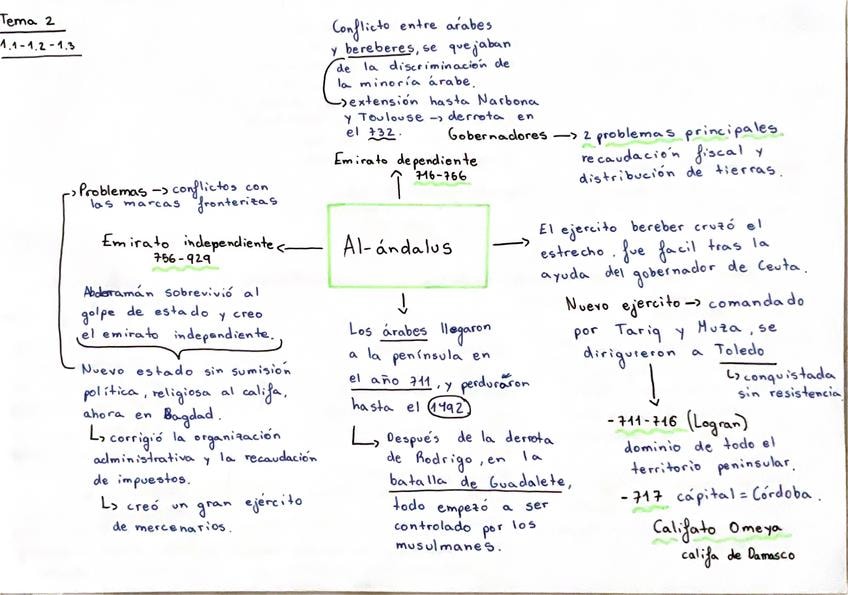 Tema 2
1.1-1.2-1.3
Conflicto entre árabes
y bereberes, se quejaban
de la discriminación de
la minoría árabe.
extensión hasta Narbona
y Toulouse → derrota en
el 732.
Gobernadores → 2 problemas principales
recaudación fiscal y
distribución de tierras.
Emirato dependiente
716-756
Problemas → conflictos con
las marcas fronterizas
Emirato independiente
756-929
Abderramán sobrevivió al
golpe de estado y creo
el emirato independiente.
Nuevo estado sin sumisión
política, religiosa al califa,
ahora en Bagdad.
↳ corrigió la organización
administrativa y la recaudación
de impuestos.
↳ creó un gran ejército
de mercenarios.
Al-ándalus
Los árabes llegaron
a la península en
el año 711, y perduraron
hasta el 1492
↳ Después de la derrota
de Rodrigo, en la
batalla de Guadalete,
todo empezó a ser
controlado por los
musulmanes.
El ejercito bereber cruzó el
estrecho. fue facil tras la
ayuda del gobernador de Ceuta.
Nuevo ejercito → comandado
por Tariq y Muza, se
dirigueron a Toledo
↳ conquistada
sin resistencia
-711-716 (Logran)
dominio de todo el
territorio peninsular.
-717 cápital = Córdoba.
Califato Omeya
califa de Damasco